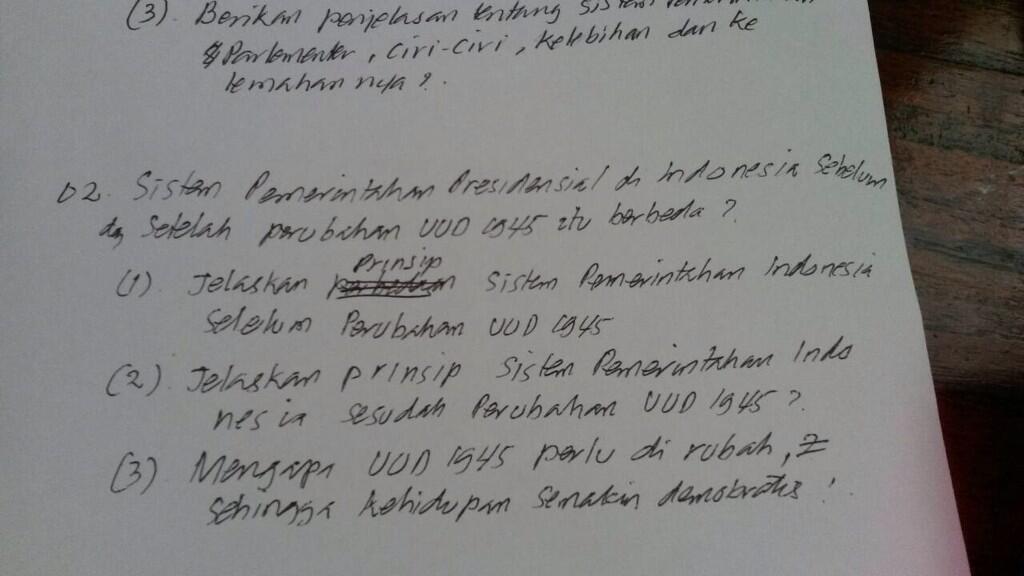 (3). Berikan penjelasan tentang Sistem Pemerintahan
Parlementer, Ciri-Ciri, Kelebihan dan ke
lemahan nya?
02. Sistem Pemerintahan Presidensial di Indonesia Sebelum
dg Setelah perubahan UUD 1945 itu berbeda?
(1). Jelaskan Prinsip Sistem Pemerintahan Indonesia
Sebelum Perubahan UUD 1945
(2). Jelaskan prinsip Sistem Pemerintahan Indo
nesia sesudah Perubahan UUD 1945?
(3) Mengapa UUD 1945 perlu di rubah,
sehingga kehidupan semakin demokratis!